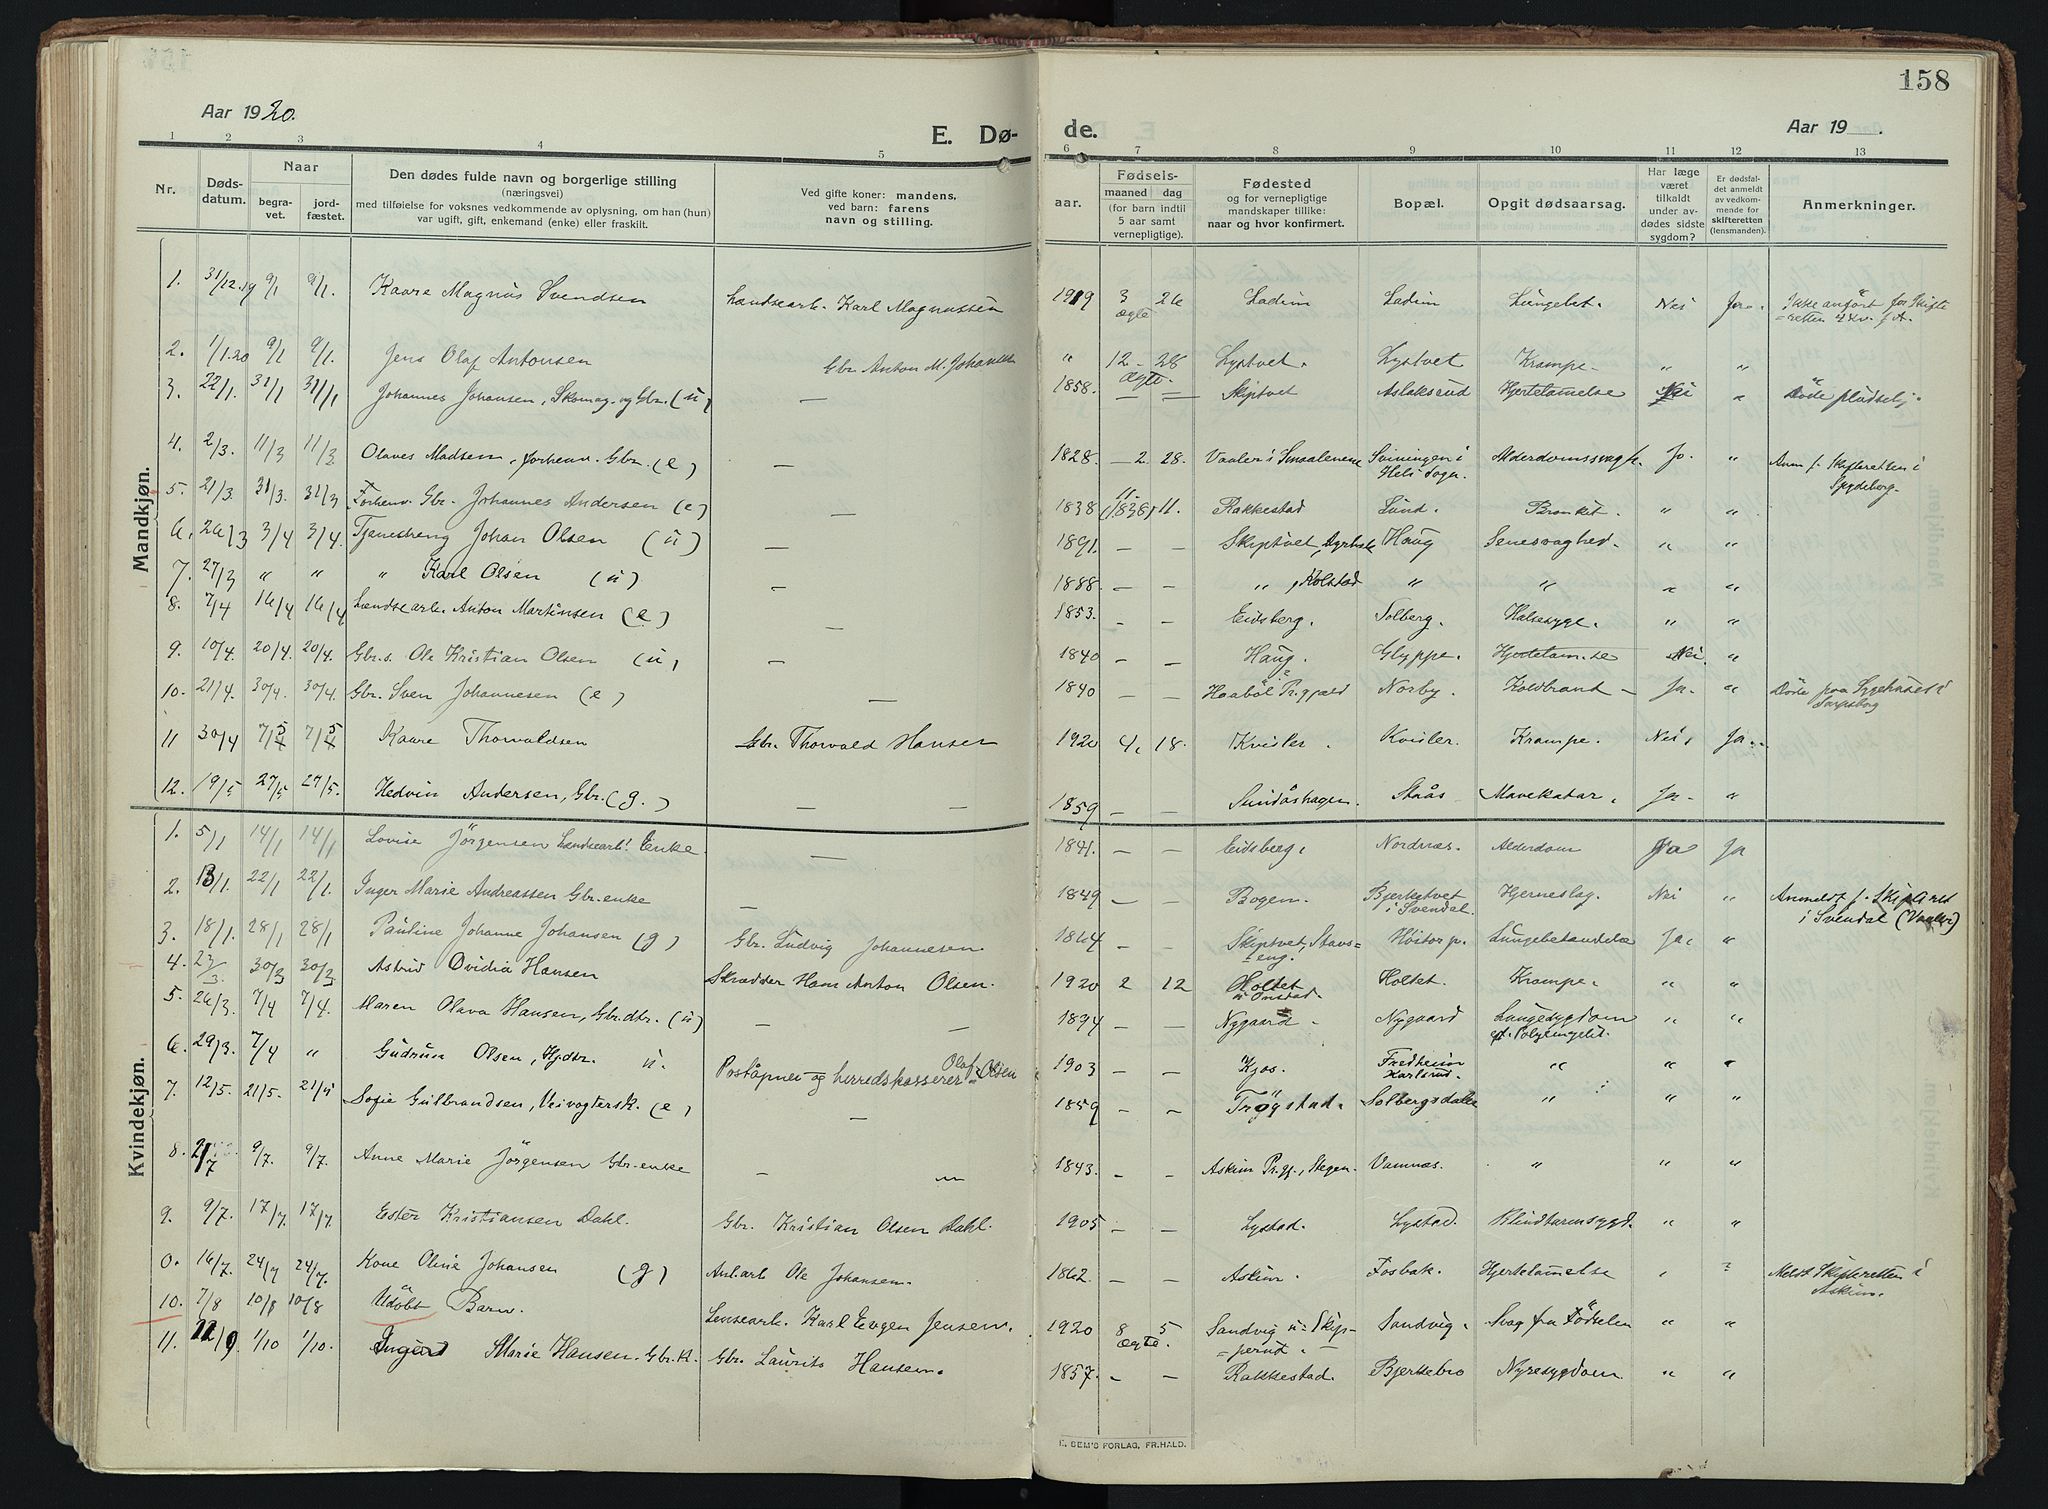 158
Aar 1920.
E. Dø-
de.
Aar 19 .
1 2 3 4 5 6 7 8 9 10 11 12 13
Nr.
Døds-
datum.
Naar
begra-
vet.
jord-
fæstet.
Den dødes fulde navn og borgerlige stilling
(næringsvei)
med tilføielse for voksnes vedkommende av oplysning, om han (hun)
var ugift, gift, enkemand (enke) eller fraskilt.
Ved gifte koner: mandens,
ved barn: farens
navn og stilling.
Fødsels-
aar.
maaned dag
(for barn indtil
5 aar samt
vernepligtige).
Fødested
og for vernepligtige
mandskaper tillike:
naar og hvor konfirmert.
Bopæl.
Opgit dødsaarsag.
Har læge
været
tilkaldt
under av-
dødes sidste
sygdom?
Er dødsfal-
det anmeldt
av vedkom-
mende for
skifteretten
(lensmanden).
Anmerkninger.
Mandkjøn.
1. 31/12.19 9/1 9/1. Kaare Magnus Svendsen Landsearb. Karl Magnussen 1919 3 26 Ladim Ladim Lungebet. Nei Ja. Ikke anført for Skifte
ægte =retten
2. 1/1.20 9/1 9/1. Jens Olaf Antonsen Gbr. Anton M. Johansen " 12 - 28 Lystvet. Lystvet Krampe - " "
Ægte
3. 22/1. 31/1 31/1 Johannes Johansen, Skomag. og Gbr. (u) — 1858. — — Skiptvet Aslaksrud Hjertelamelse Nei " Døde pludselig.
4. 2/3. 11/3 11/3 Olaves Madsen, forhenv. Gbr. (e) — 1828. - 2. 28. Vaaler i Smaalenene Sviningen i Alderdomssvagh. Ja. " Anm f. Skifteretten i
Heli Sogn. Spydeberg.
5. 21/3. 31/3. 31/3 Forhenv. Gbr. Johannes Andersen (e) — 1838 (1838) 11. 11. Rakkestad Lund. Bronkit. " "
6. 26/3 3/4 3/4. Tjenestheng Johan Olsen (u) — 1891. — — Skiptvet, Haug Senesvaghed. " "
7. 27/3 " " " Karl Olsen (u) - 1888. - - " , Kolstad " " " "
8. 7/4 16/4 16/4 Landsearb. Anton Martinsen (e) — 1853. - - Eidsberg. Solberg. Halsesyge. " "
9. 10/4. 20/4. 20/4. Gbr.s. Ole Kristian Olsen (u) — 1840 — — Haug. Glyppe. Hjertelamelse Nei. "
10. 21/4. 30/4. 30/4. Gbr. Sven Johannesen (e) — 1840 — — Haabøl Pr.gjæld Norby. Koldbrand — Ja. " Døde paa Sygehuset i
Sarpsborg
11 30/4 7/5 7/5 Kaare Thorvaldsen Gbr. Thorvald Hansen 1920 4. 18. Kvisler. Kvisler. Krampe. Nei, Ja.
12. 19/5 27/5 27/5. Hedvin Andersen, Gbr. (g.) — — 1859 — — Sundåshagen. Staås Mavekatar. Ja. "
Kvindekjøn.
1. 5/1 14/1 14/1 Lovise Jørgensen Landsearb. Enke. — 1841. — — Eidsberg. Nordnæs. Alderdom Ja Ja
2. 13/1. 22/1 22/1. Inger Marie Andreassen Gbr. enke — 1849 — — Bogen. Bjerketvet Hjerneslag. Nei " Anmeldt f. Skiftret
i Svendal. i Svendal (Vaaler)
3. 18/1. 28/1 28/1 Pauline Johanne Johansen (g) Gbr. Ludvig Johannesen. 1864 - - Skiptvet, Stavs- Høitorp. Lungebetændelse Ja. "
eng.
4. 23/3. 30/3 30/3 Astrid Ovidia Hansen Skrædder Hans Anton Olsen. 1920 2 12 Holtet Holtet. Krampe. " "
u Onstad.
5. 26/3. 7/4 7/4. Maren Olava Hansen, Gbr.dtr. (u) — — 1894 — — Nygaard. Nygaard Lungesygdom " "
6. 29/3. 7/4 " Gudrun Olsen, u. Poståpner og herredskasserer Olaf Olsen 1903 - - Kjos. Fredheim " " "
Karlsrud.
7. 12/5. 21/5. 21/5 Sofie Gulbrandsen, Veivogtersk. (e) — 1859 - - Trøgstad. Solbergsdalen " " "
8. 2/7 9/7. 9/7. Anne Marie Jørgensen Gbr. enke — 1843. — — Askim Pr.gj., Stegen. Vamnæs. " " "
9. 9/7. 17/7. 17/7. Ester Kristiansen Dahl. Gbr. Kristian Olsen Dahl. 1905 — — Lystad. Lystad. Blindtarmsygd. " "
0. 16/7. 24/7 24/7. Kone Oline Johansen (g) Anl.arb Ole Johansen. 1862. - - Askim. Fosbak. Hjertelamelse ? Meldt Skifteretten i
Askim.
10. 7/8 10/8 10/8 Udøbt Barn. Lensearb. Karl Evgen Jensen. 1920 8 5 Sandvig u= Skip- Sandvig. Svag fra Fødselen " "
Ægte. =perud.
11. 22/9 1/10 1/10. Marie Hansen. Gbr.k. Gbr. Laurits Hansen. 1857. - - Rakkestad. Bjerkebro Nyresygdom " "
E. SEM'S FORLAG, FR.HALD.